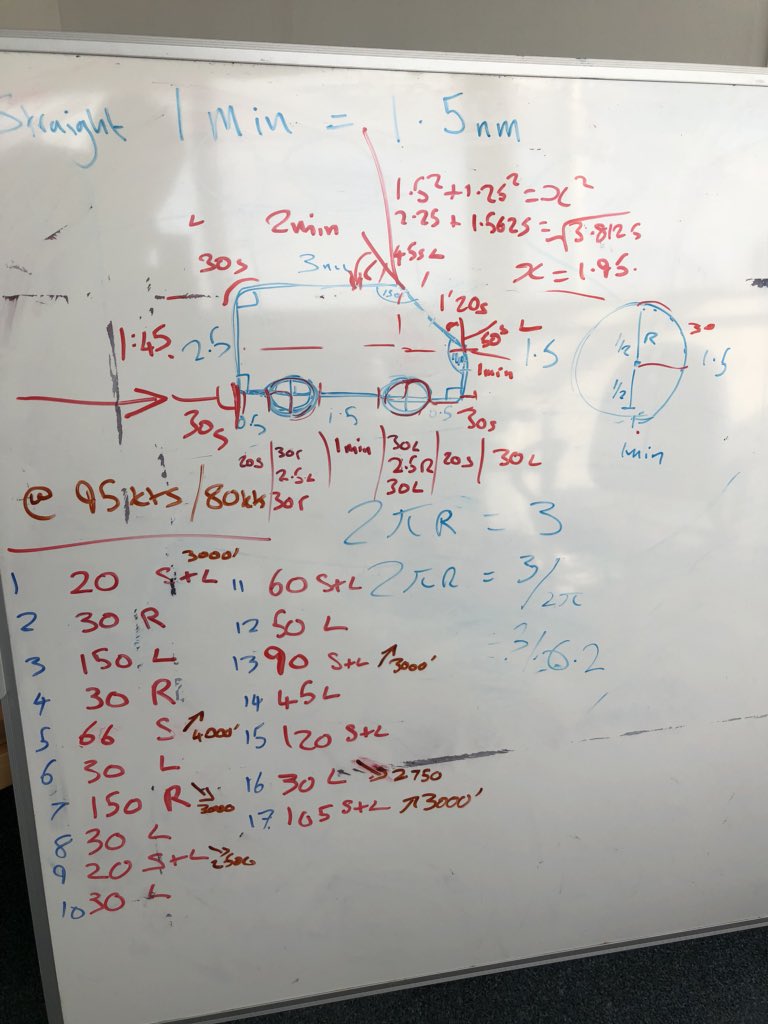 Straight 1 min = 1.5nm
1.5² + 1.25² = x²
2.25 + 1.5625 = √3.8125
x = 1.95.
L
2min
30s
45s L
1'20s
50s L
1:45
2.5
1min
1.5
30
½
R
1.5
½
1min
30s
0.5
1.5
0.5
30s
20s | 30r | 1min | 30L | 20s | 30L
2.5L 2.5R
30r 30L
@ 95kts / 80kts
2πR = 3
2πR = 3/2π
= 3/6.2
1 20 S+L 3000'
2 30 R
3 150 L
4 30 R
5 66 S ↗4000'
6 30 L
7 150 R ↘3000
8 30 L
9 20 S+L ↘2500
10 30 L
11 60 S+L
12 50 L
13 90 S+L ↗3000'
14 45 L
15 120 S+L
16 30 L ↘2750
17 105 S+L ↗3000'